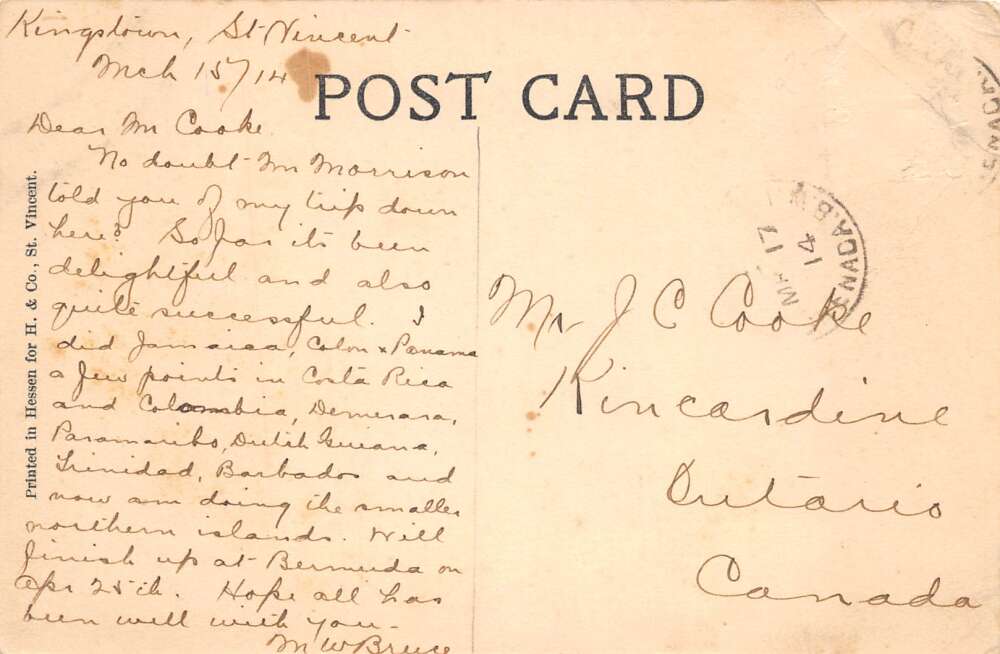 Kingstown, St Vincent
Mch 15/14
POST CARD
Dear Mr Cooke
No doubt Mr Morrison
told you of my trip down
here? So far its been
delightful and also
quite successful. I
did Jamaica, Colon & Panama
a few points in Costa Rica
and Colombia, Demerara,
Paramaribo, Dutch Guiana,
Trinidad, Barbados and
now am doing the smaller
northern islands. Will
finish up at Bermuda on
Apr 25th. Hope all has
been well with you-
M W Bruce
Printed in Hessen for H. & Co., St. Vincent.
17
14
ENADA.B.W.
Mr J C Cooke
Kincardine
Ontario
Canada